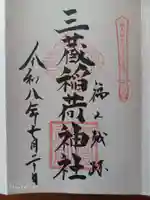 福山城跡
三蔵稲荷神社
令和八年一月二日